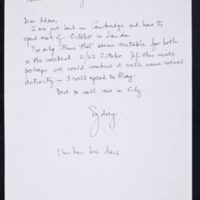 Dear Adam,
I am just back in Cambridge and have to
spend most of October in London
The only time that seems suitable for both
is the weekend 21/22 October. If this suits
perhaps we could combine it with some social
activity in I will speak to May.
Best to call me in
Sydney
This has been done.